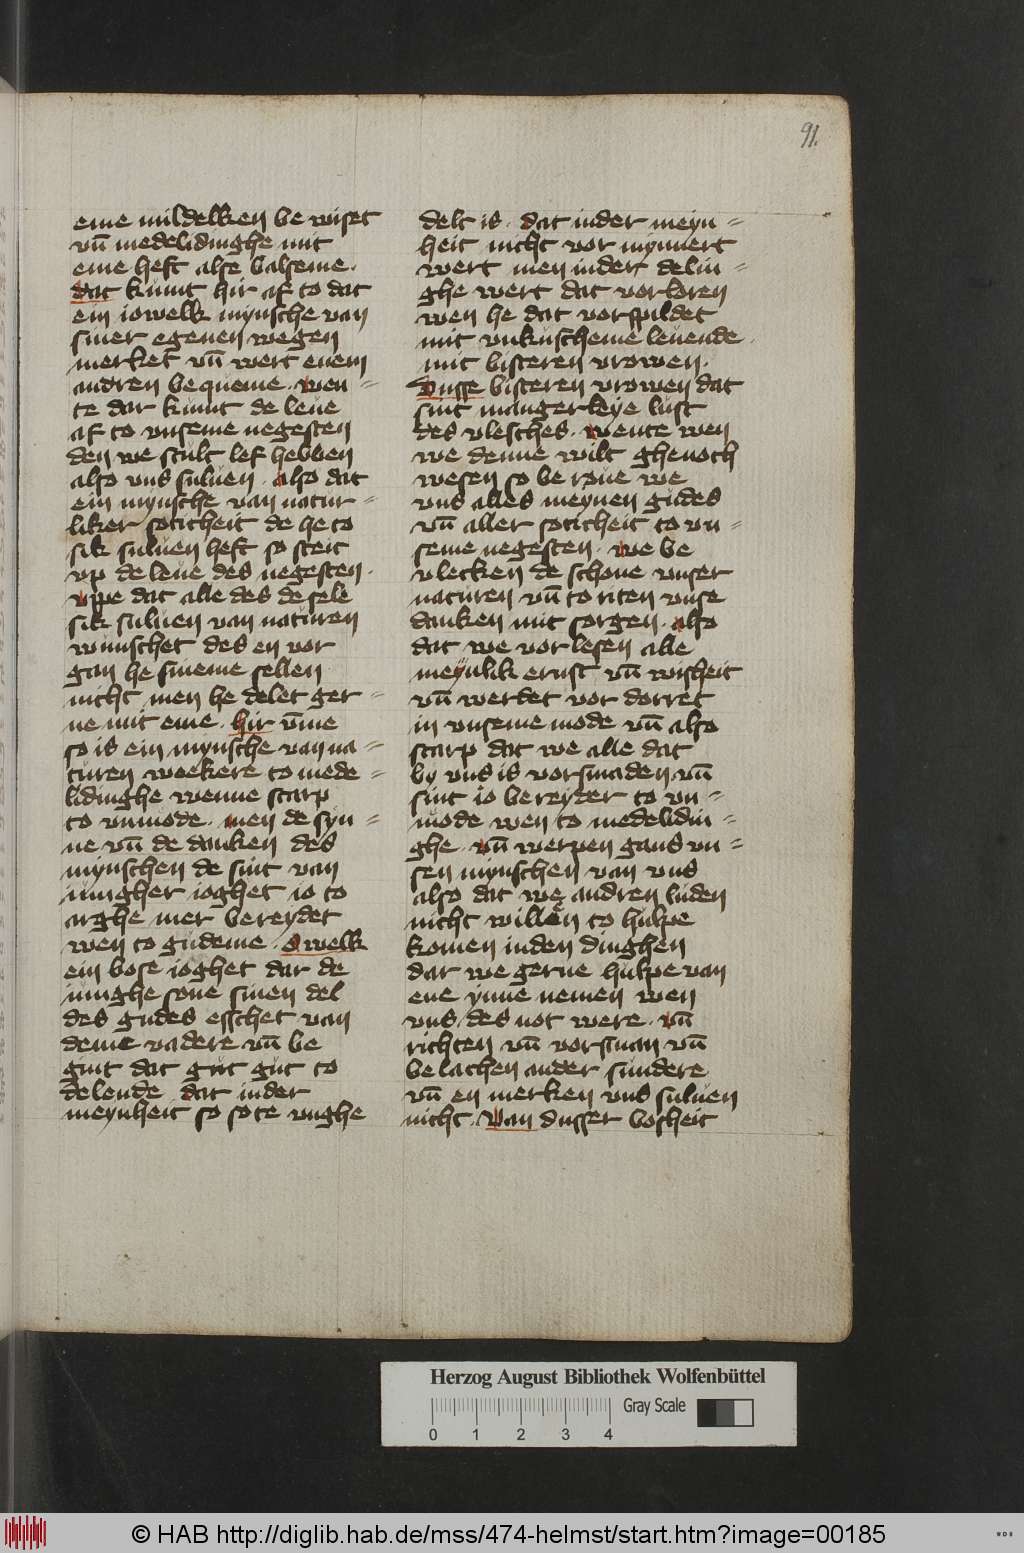 91.
eme mildelken be wiset
vn̄ medelidinghe mit
eme heft alse balseme.
dat kumt hir af to dat
ein iowelk mynsche van
siner egenen wegen
merket vn̄ wert enem
andren bequeme. wen=
te dar kumt de leue
af to vnseme negesten
den we scult lef hebben
also vns suluen. also dat
ein mynsche van natur=
liker soticheit de he to
sik suluen heft so steit
vp de leue des negesten.
vppe dat alle des de sele
sik suluen van naturen
wunschet des en vor
gan he sineme sellen
nicht men he delet ger=
ne mit eme. hir v̄me
so is ein mynsche van na=
turen weekere to mede=
lidinghe wenne scarp
to vnmode. men de syn=
ne vn̄ de danken des
mynschen de sint van
iungher ioghet io to
arghe mer bereydet
wen to gudeme. O welk
ein bose ioghet dar de
iunghe sone sinen del
des gudes esschet van
deme vadere vn̄ be
gint dat gut gut to
delende dat in der
meynheit so sote vnghe
delt is. dat in der meyn=
heit nicht vor mynnert
wert men in der delin=
ghe wert dat vorloren
wen he dat vorspildet
mit vnkuscheme leuende.
mit bisteren vrowen.
Dusse bisteren vrowen dat
sint mangerleye lust
des vlesches. wente wen
we denne wilt ghenoch
wesen so be roue we
vns alles meynen gudes
vn̄ aller soticheit to vn=
seme negesten. we be
vlecken de schone vnser
naturen vn̄ to riten vnse
danken mit sorgen. also
dat we vor lesen alle
meynlik ernst vn̄ wisheit
vn̄ werdet vor dorret
in vnseme mode vn̄ also
scarp dat we alle dat
by vns is vorsmaden vn̄
sint io bereyder to vn=
mode wen to medelidin=
ghe. vn̄ werpen gans vn=
sen mynschen van vns
also dat we andren luden
nicht willen to hulpe
komen in den dinghen
dar we gerne hulpe van
ene ynne nemen wen
vns des not were. vn̄
richten vn̄ vorsman vn̄
belachen ander sundere
vn̄ en merken vns suluen
nicht. Van dusser bosheit
Herzog August Bibliothek Wolfenbüttel
Gray Scale
0 1 2 3 4
© HAB http://diglib.hab.de/mss/474-helmst/start.htm?image=00185